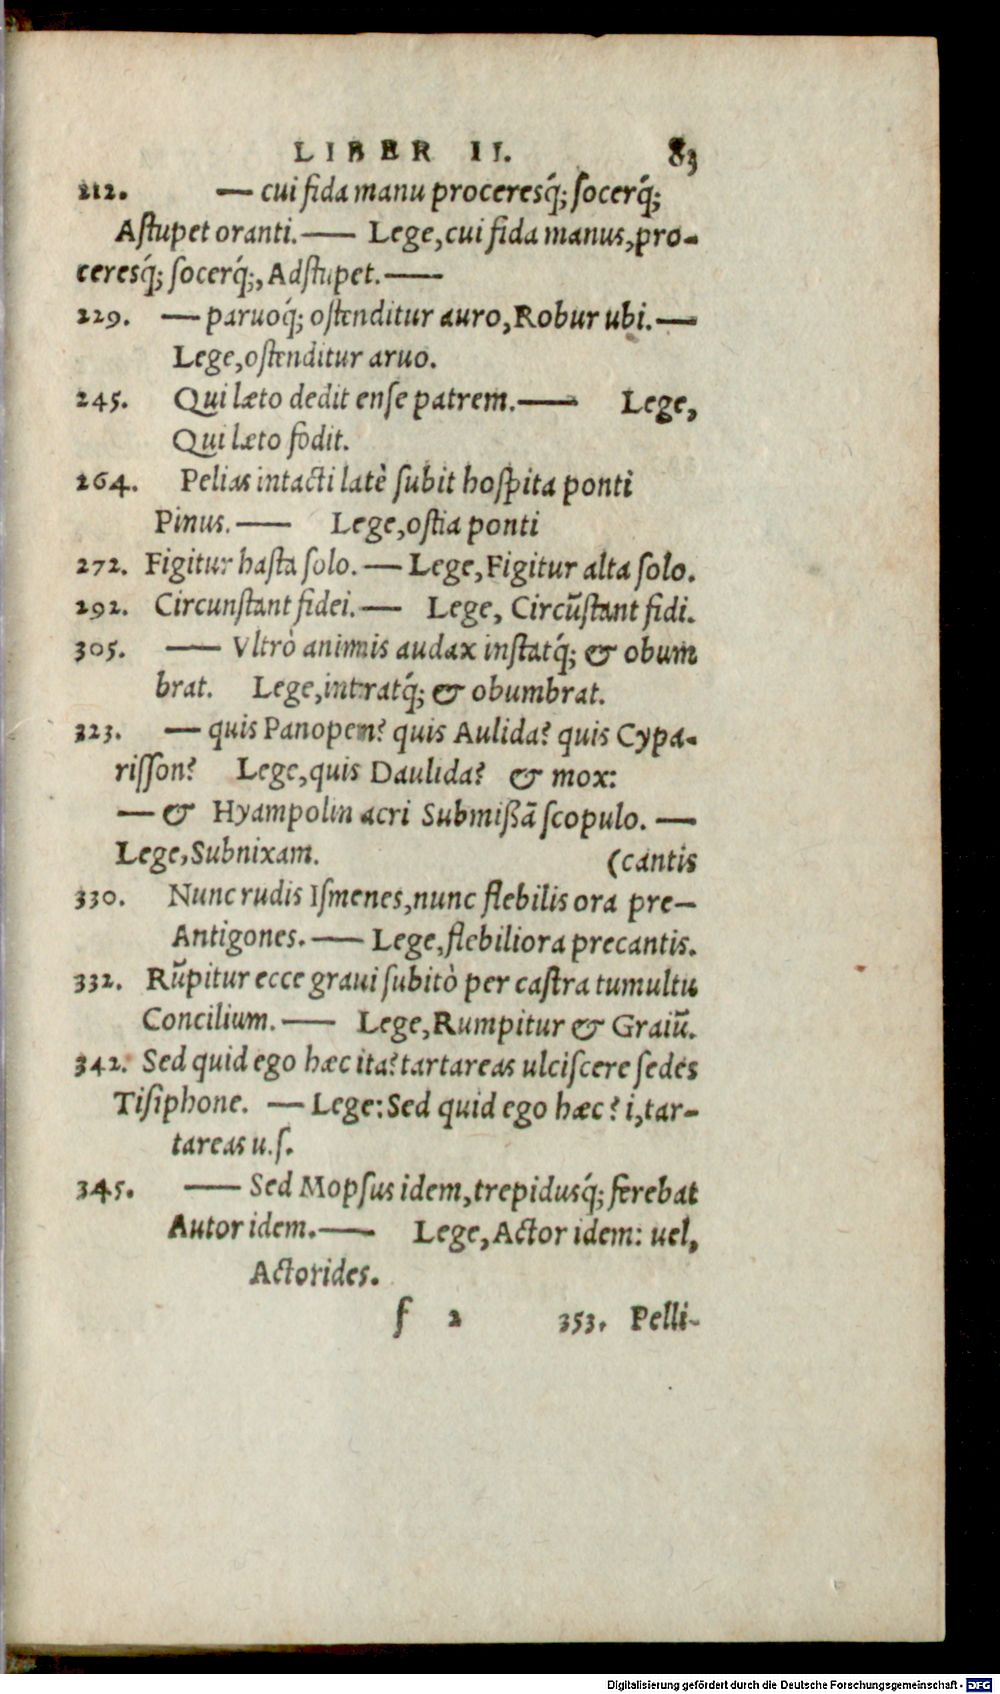 LIBER II. 83
212. — cui fida manu proceresq́; socerq́;
Astupet oranti.— Lege, cui fida manus, pro-
ceresq́; socerq́;, Adstupet.—
229. — paruoq́; ostenditur auro, Robur ubi.—
Lege, ostenditur aruo.
245. Qui læto dedit ense patrem.— Lege,
Qui læto fodit.
264. Pelias intacti latè subit hospita ponti
Pinus.— Lege, ostia ponti
272. Figitur hasta solo.— Lege, Figitur alta solo.
292. Circunstant fidei.— Lege, Circūstant fidi.
305. — Vltrò animis audax instatq́; & obum
brat. Lege, intratq́; & obumbrat.
323. — quis Panopen? quis Aulida? quis Cypa-
risson? Lege, quis Daulida? & mox:
— & Hyampolin acri Submißā scopulo. —
Lege, Subnixam. (cantis
330. Nunc rudis Ismenes, nunc flebilis ora pre—
Antigones.— Lege, flebiliora precantis.
332. Rūpitur ecce graui subitò per castra tumultu
Concilium.— Lege, Rumpitur & Graiū.
342. Sed quid ego hæc ita? tartareas ulciscere sedes
Tisiphone. — Lege: Sed quid ego hæc? i, tar-
tareas u.s.
345. — Sed Mopsus idem, trepidusq́; ferebat
Autor idem.— Lege, Actor idem: uel,
Actorides.
f 2 353. Pelli-
Digitalisierung gefördert durch die Deutsche Forschungsgemeinschaft - DFG